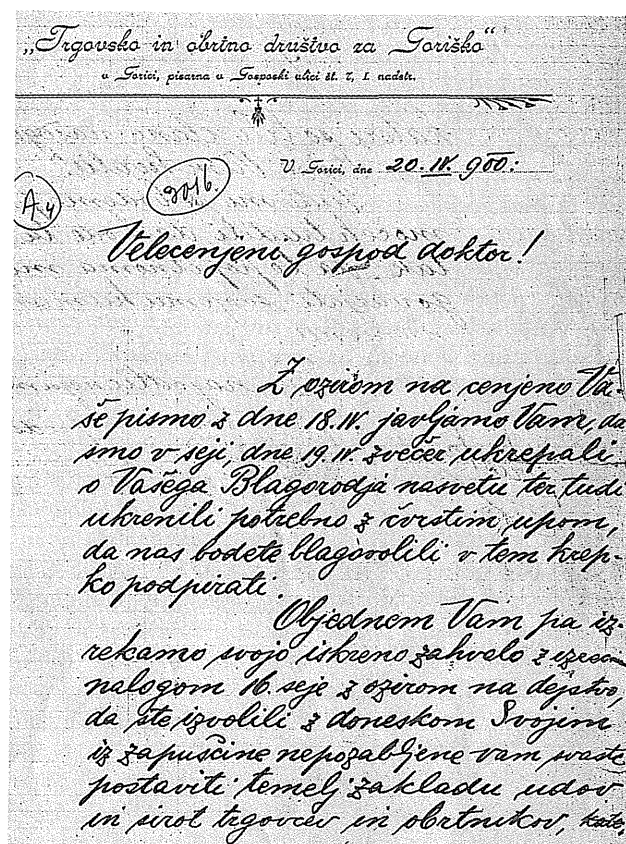 „Trgovsko in obrtno društvo za Goriško“
v Gorici, pisarna v Gosposki ulici št. 7, I. nadstr.
V Gorici, dne 20. IV. 900.
3016.
A 4
Velecenjeni gospod doktor!
Z ozirom na cenjeno Va-
še pismo z dne 18. IV. javljamo Vam, da
smo v seji, dne 19. IV. zvečer ukrepali
o Vašega Blagorodja nasvetu ter tudi
ukrenili potrebno z čvrstim upom,
da nas bodete blagovolili v tem krep-
ko podpirati.
Objednem Vam pa iz-
rekamo svojo iskreno zahvalo z
nalogom 16. seje z ozirom na dejstvo,
da ste izvolili z doneskom Svojim
iz zapuščine nepozabljene vam
postaviti temelj zakladu udov
in sirot trgovcev in obrtnikov,